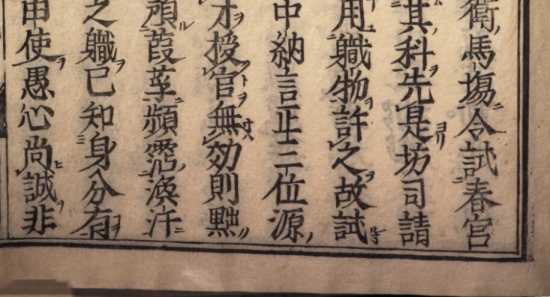 衛馬場令試春宮
其科先是坊司請
用職物許之故試
中納言正三位源
才授官無効則黜
顔葭莩頻霑渙汗
之職已知身分有
由使愚心尚誠非